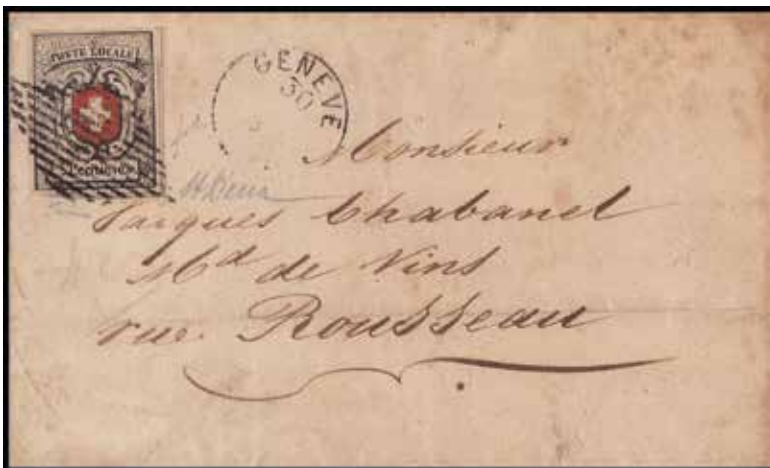 POSTE LOCALE
GENEVE
30
Monsieur
Jacques Chabanel
Md de Vins
rue Rousseau